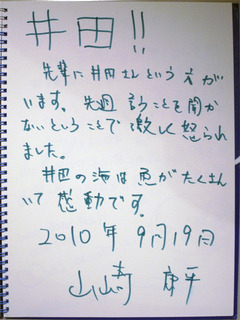 井田!!
先輩に井田さんという犬が
います。先週 言うことを聞か
ないということで激しく怒られ
ました。
井田の海は魚がたくさん
いて感動です。
2010年9月19日
山嵜 康平